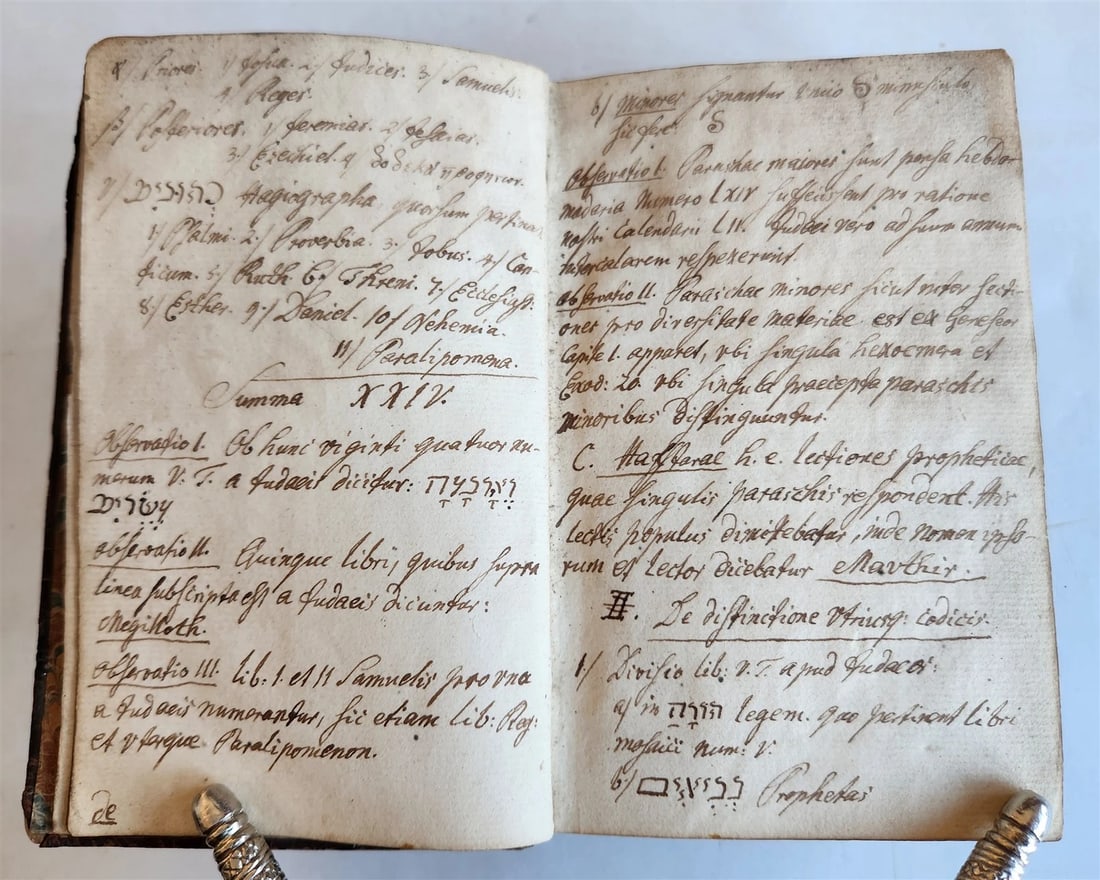 α/ Priores. 1/ Josua. 2/ Judices. 3/ Samuelis.
4/ Reges.
β/ Posteriores. 1/ Jeremias. 2/ Jesaias.
3/ Ezechiel. 4
γ/ כתובים Hagiographa, quorsum pertinent
1/ Psalmi. 2/ Proverbia. 3/ Jobus. 4/ Can-
ticum. 5/ Ruth 6/ Threni. 7/ Ecclesiast.
8/ Esther. 9/ Daniel. 10/ Nehemia.
11/ Paralipomena.
Summa XXIV.
Observatio I. Ob hunc viginti quatuor nu-
merum V. T. a Judaeis dicitur:
Observatio II. Quinque libri, quibus supra
linea subscripta est a Judaeis dicuntur:
Megilloth.
Observatio III. lib: I. et II Samuelis pro vna
a Judaeis numerantur, sic etiam lib: Reg:
et vterque Paralipomenon.
de
b/ Minores signantur
sic fere
Observatio I. Paraschae maiores sunt pensa hebdo-
madaria Numero LXIV suffecissent pro ratione
nostri Calendarii LII. Judaei vero ad suum annum
intercalarem respexerunt.
Observatio II. Paraschae minores sicut inter secti-
ones pro diversitate materiae est ex Geneseos
Capite I. apparet, vbi singula hexaemera et
Exod: 20. vbi singula praecepta paraschis
minoribus distinguuntur.
C. Hafftarae h. e. lectiones propheticae,
quae singulis paraschis respondent. His
lectis populus dimittebatur, inde nomen ipso-
rum et lector dicebatur Mavthir.
II. De distinctione Vtriusq: codicis.
1/ Divisio lib: V. T. apud Judaeos:
a/ in תורה legem. quo pertinent libri
mosaici num: V.
b/ נביאים Prophetas